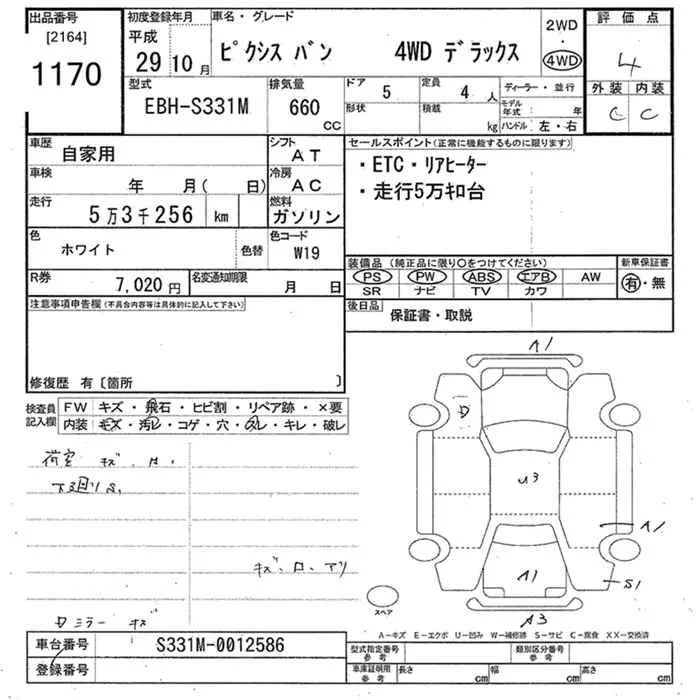 出品番号 初度登録年月 車名・グレード 2WD 評価点
[2164] 平成 ・ 4
1170 29年10月 ピクシス バン 4WD デラックス 4WD
型式 排気量 ドア 5 定員 4人 ディーラー・並行 外装 内装
EBH-S331M 660 CC 形状 積載 kg モデル年式 年 C C
ハンドル 左・右
車歴 自家用 シフト AT セールスポイント(正常に機能するものに限ります)
車検 年 月( 日) 冷房 AC ・ETC・リアヒーター
走行 5万3千256 km 燃料 ガソリン ・走行5万キロ台
色 ホワイト 色替 色コード W19
装備品 (純正品に限り〇をつけてください) 新車保証書
R券 7,020円 名変通知期限 月 日 PS PW ABS エアB AW 有・無
SR ナビ TV カワ
注意事項申告欄(不具合内容等は具体的に記入して下さい) 後日品 保証書・取説
修復歴 有〔箇所 〕
A1
検査員記入欄 FW キズ・飛石・ヒビ割・リペア跡・×要
内装 キズ・汚レ・コゲ・穴・スレ・キレ・破レ
荷室 キズ、ロ、
下回りS,
U3
A1
キズ、ロ、アリ
A1
S1
スペア
ミラー キズ
A3
A-キズ E-エクボ U-凹み W-補修跡 S-サビ C-腐食 XX-交換済
車台番号 S331M-0012586 型式指定番号 参考 類別区分番号 参考
登録番号 車庫証明用 参考 長さ cm 幅 cm 高さ cm